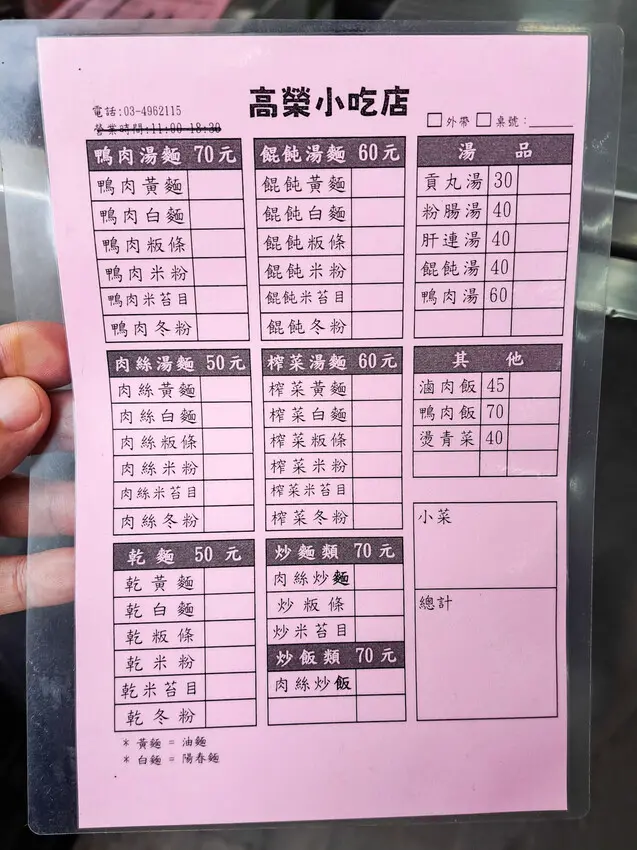 高榮小吃店
電話:03-4962115
營業時間:11:00-18:30
外帶 桌號:
鴨肉湯麵 70元
鴨肉黃麵
鴨肉白麵
鴨肉粄條
鴨肉米粉
鴨肉米苔目
鴨肉冬粉
餛飩湯麵 60元
餛飩黃麵
餛飩白麵
餛飩粄條
餛飩米粉
餛飩米苔目
餛飩冬粉
湯品
貢丸湯 30
粉腸湯 40
肝連湯 40
餛飩湯 40
鴨肉湯 60
肉絲湯麵 50元
肉絲黃麵
肉絲白麵
肉絲粄條
肉絲米粉
肉絲米苔目
肉絲冬粉
榨菜湯麵 60元
榨菜黃麵
榨菜白麵
榨菜粄條
榨菜米粉
榨菜米苔目
榨菜冬粉
其他
滷肉飯 45
鴨肉飯 70
燙青菜 40
乾麵 50元
乾黃麵
乾白麵
乾粄條
乾米粉
乾米苔目
乾冬粉
炒麵類 70元
肉絲炒麵
炒粄條
炒米苔目
炒飯類 70元
肉絲炒飯
小菜
總計
* 黃麵 = 油麵
* 白麵 = 陽春麵